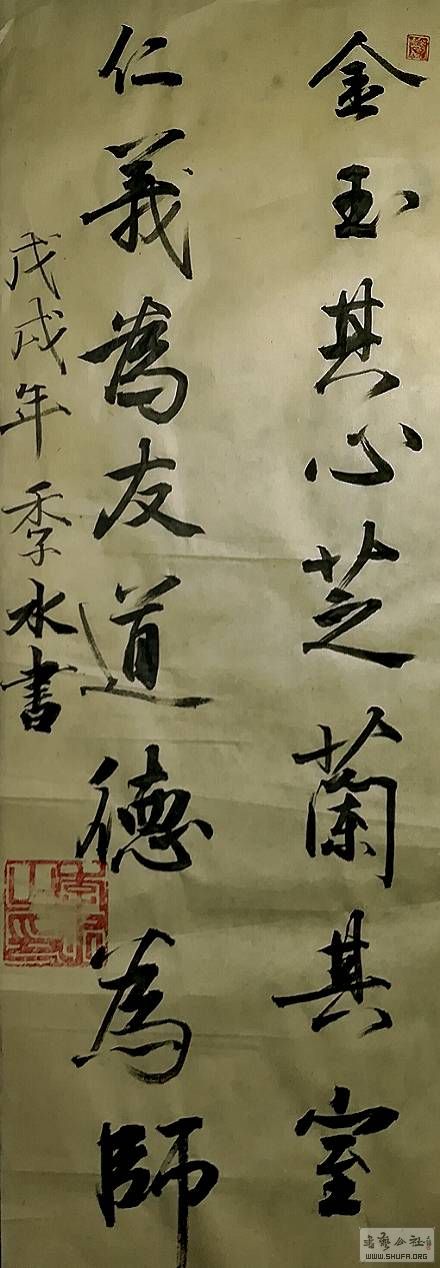 金玉其心芝蘭其室
仁義為友道德為師
戊戌年季水書
書藝公社
WWW.SHUFA.ORG